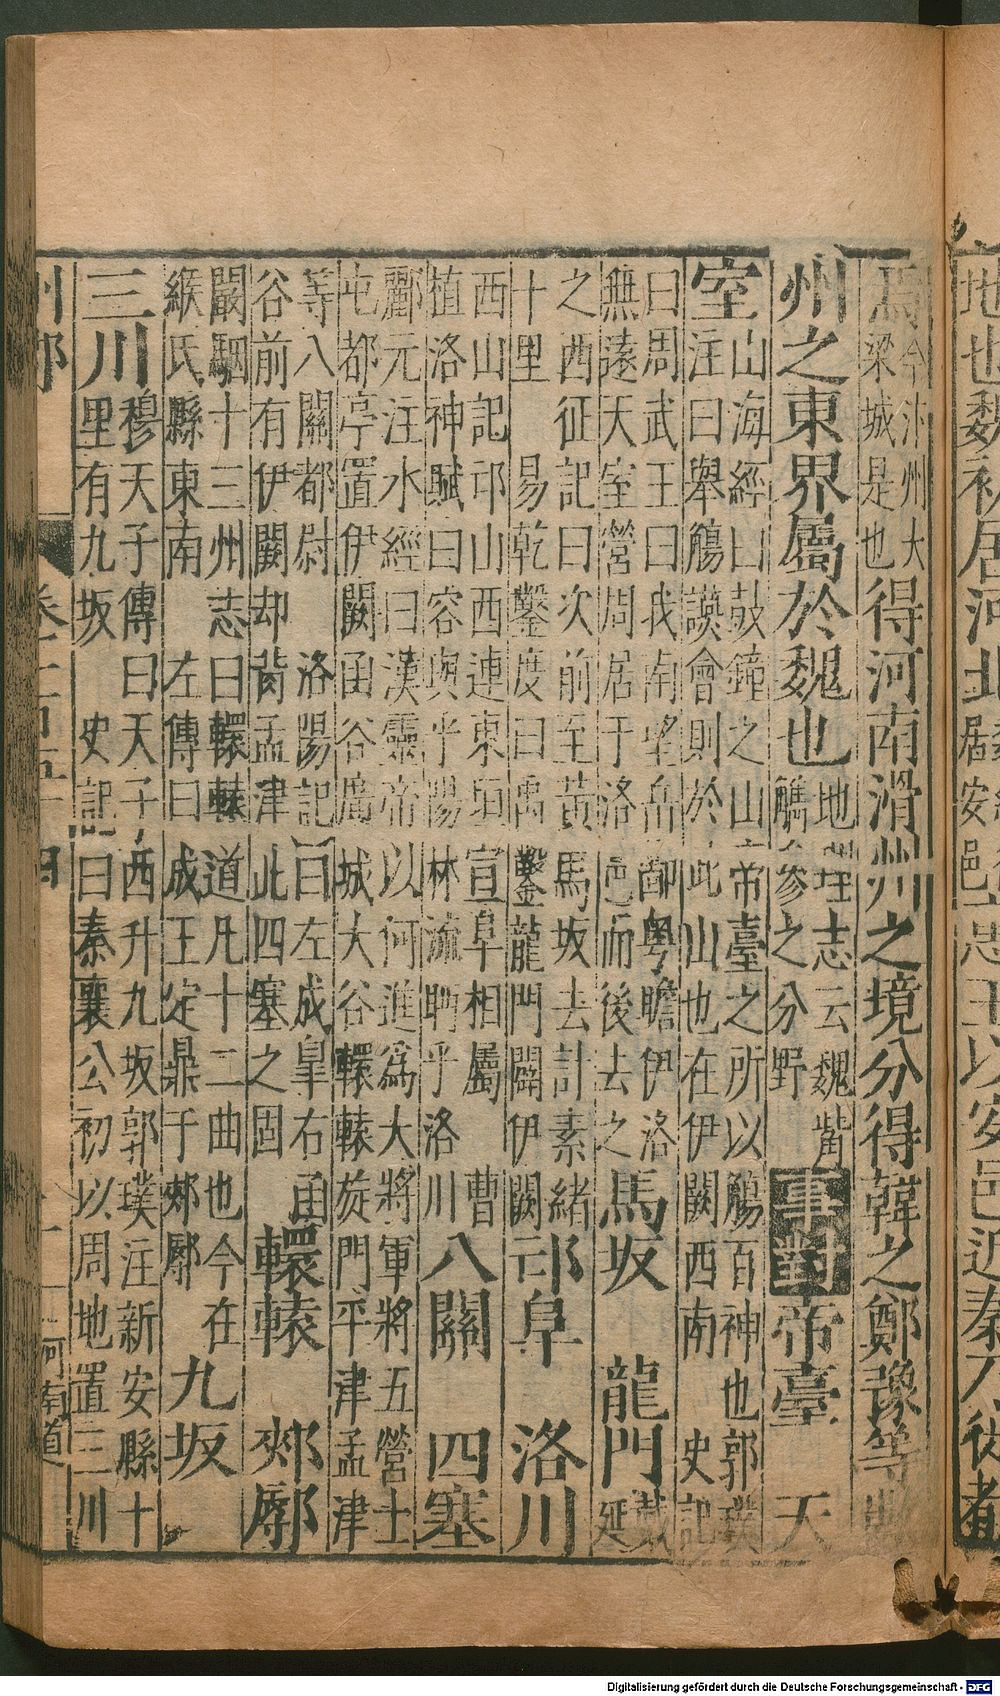 地也魏初居河北居安邑惠王以安邑近秦乃徙都
焉今汴州大
梁城是也
得河南滑州之境分得韓之鄭豫等
州之東界屬於魏也地理志云魏觜
觿參之分野
事對 帝臺 天
室山海經曰鼓鐘之山帝臺之所以觴百神也郭璞
注曰舉觴讌會則於此山也在伊闕西南 史記
曰周武王曰我南望岳鄙粵瞻伊洛
無遠天室營周居于洛邑而後去之
馬坂 龍門戴
延
之西征記曰次前至黃馬坂去計素緒
十里 易乾鑿度曰禹鑿龍門闢伊闕
邙阜 洛川
西山記邙山西連東垣宣阜相屬 曹
植洛神賦曰容與乎陽林流眄乎洛川
八關 四塞
酈元注水經曰漢靈帝以何進為大將軍將五營士
屯都亭置伊闕函谷廣城大谷轘轅旋門平津孟津
等八關都尉 洛陽記曰左成皋右函
谷前有伊闕却背孟津此四塞之固
轘轅 郟鄏
闞駰十三州志曰轘轅道凡十二曲也今在
緱氏縣東南 左傳曰成王定鼎于郟鄏
九坂
三川穆天子傳曰天子西升九坂郭璞注新安縣十
里有九坂 史記曰秦襄公初以周地置三川
州郡 卷一百五十四 十一 河南道
Digitalisierung gefördert durch die Deutsche Forschungsgemeinschaft - DFG